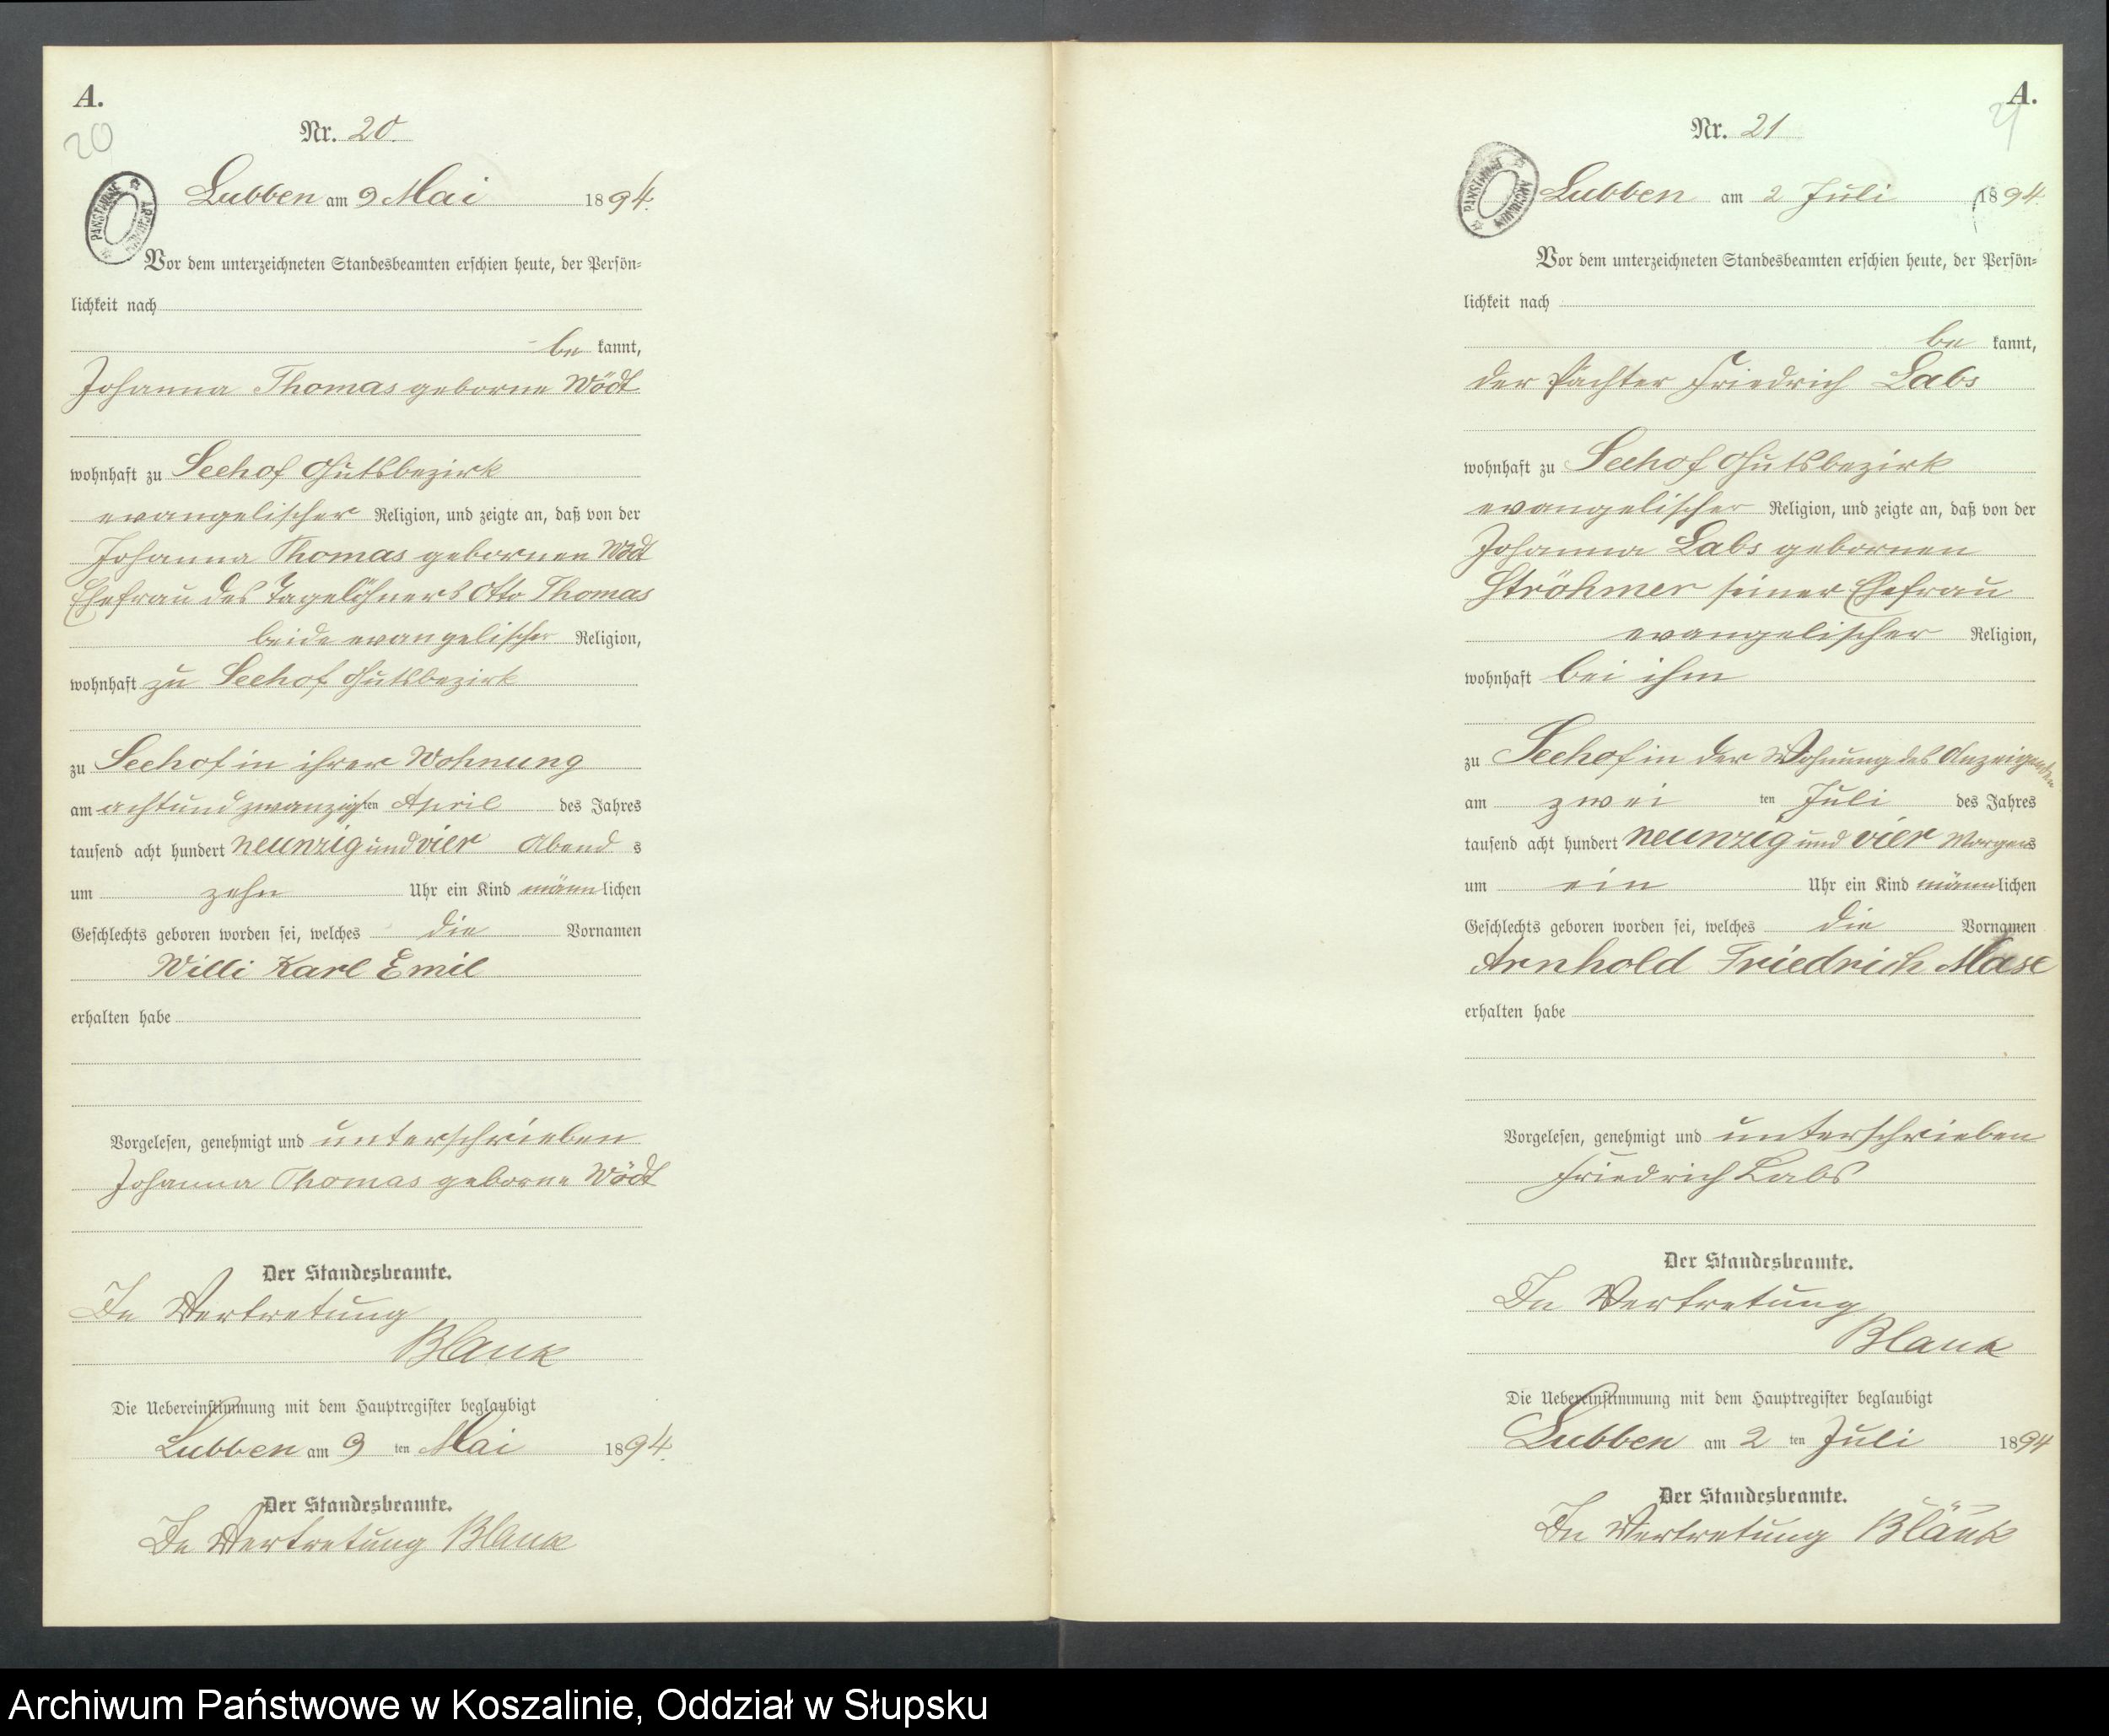 A.
20
Nr. 20.
PAŃSTWOWE ARCHIWUM
Lubben am 9 Mai 1894.
Vor dem unterzeichneten Standesbeamten erschien heute, der Persön-
lichkeit nach
be kannt,
Johanna Thomas geborne Wödt
wohnhaft zu Seehof Gutsbezirk
evangelischer Religion, und zeigte an, daß von der
Johanna Thomas gebornen Wödt
Ehefrau des Tagelöhners Otto Thomas
beide evangelischer Religion,
wohnhaft zu Seehof Gutsbezirk
zu Seehof in ihrer Wohnung
am achtundzwanzigsten April des Jahres
tausend acht hundert neunzig und vier Abend s
um zehn Uhr ein Kind männlichen
Geschlechts geboren worden sei, welches die Vornamen
Willi Karl Emil
erhalten habe
Vorgelesen, genehmigt und unterschrieben
Johanna Thomas geborne Wödt
Der Standesbeamte.
In Vertretung
Blank
Die Uebereinstimmung mit dem Hauptregister beglaubigt
Lubben am 9 ten Mai 1894.
Der Standesbeamte.
In Vertretung Blank
A.
21
Nr. 21
PAŃSTWOWE ARCHIWUM
Lubben am 2 Juli 1894.
Vor dem unterzeichneten Standesbeamten erschien heute, der Persön-
lichkeit nach
be kannt,
der Pächter Friedrich Labs
wohnhaft zu Seehof Gutsbezirk
evangelischer Religion, und zeigte an, daß von der
Johanna Labs gebornen
Ströhmer seiner Ehefrau
evangelischer Religion,
wohnhaft bei ihm
zu Seehof in der Wohnung des Anzeigenden
am zwei ten Juli des Jahres
tausend acht hundert neunzig und vier Morgens
um ein Uhr ein Kind männlichen
Geschlechts geboren worden sei, welches die Vornamen
Arnhold Friedrich
erhalten habe
Vorgelesen, genehmigt und unterschrieben
Friedrich Labs
Der Standesbeamte.
In Vertretung
Blank
Die Uebereinstimmung mit dem Hauptregister beglaubigt
Lubben am 2 ten Juli 1894
Der Standesbeamte.
In Vertretung Blank
Archiwum Państwowe w Koszalinie, Oddział w Słupsku